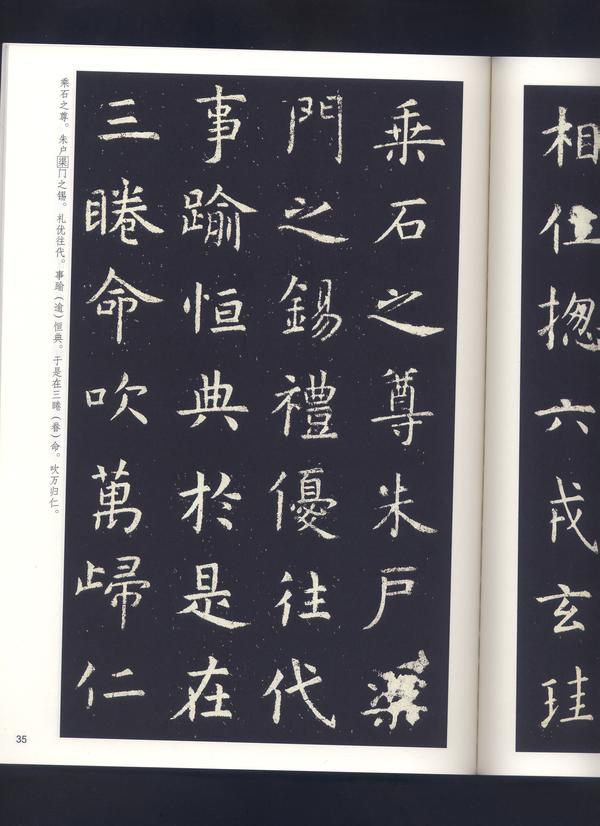 相位揔六戎玄珪
乘石之尊朱戶渠
門之錫禮優往代
事踰恒典於是在
三睠命吹萬歸仁
乘石之尊。朱户渠门之锡。礼优往代。事踰（逾）恒典。于是在三睠（眷）命。吹万归仁。
35